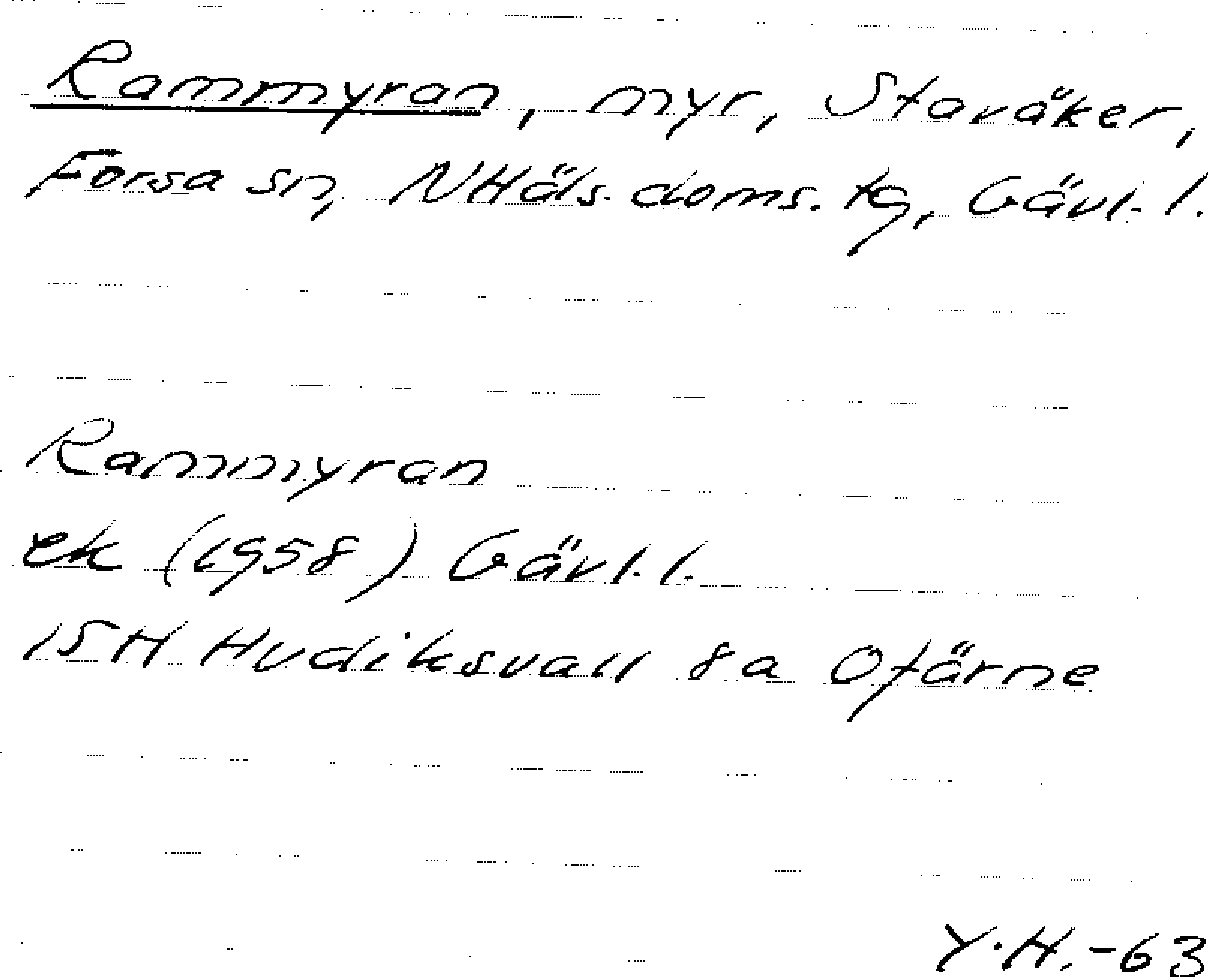 Rammyran, myr, Staväker,
Forsa sn, NHäls. doms. tg, Gävl. l.
Rammyran
ek (1958) Gävl. l.
15H Hudiksvall 8a Ofärne
Y.H.-63